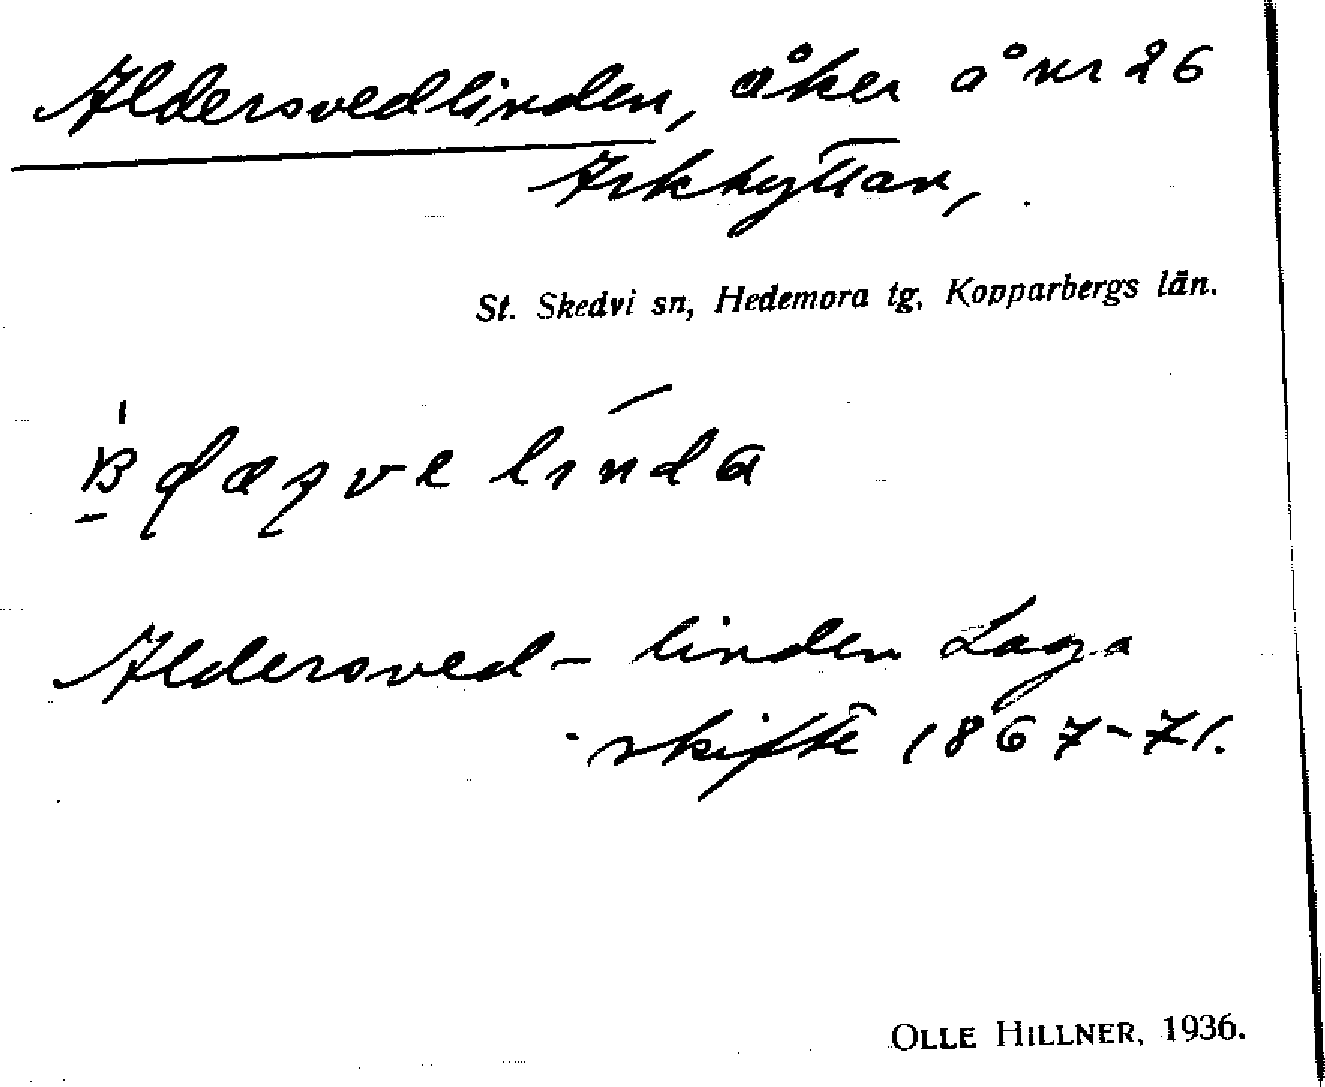 Aldersvedlinden, åker å nr 26
Arkhyttan,
St. Skedvi sn, Hedemora tg, Kopparbergs län.
linda
Aldersved- linden Laga
skifte 1867-71.
OLLE HILLNER, 1936.